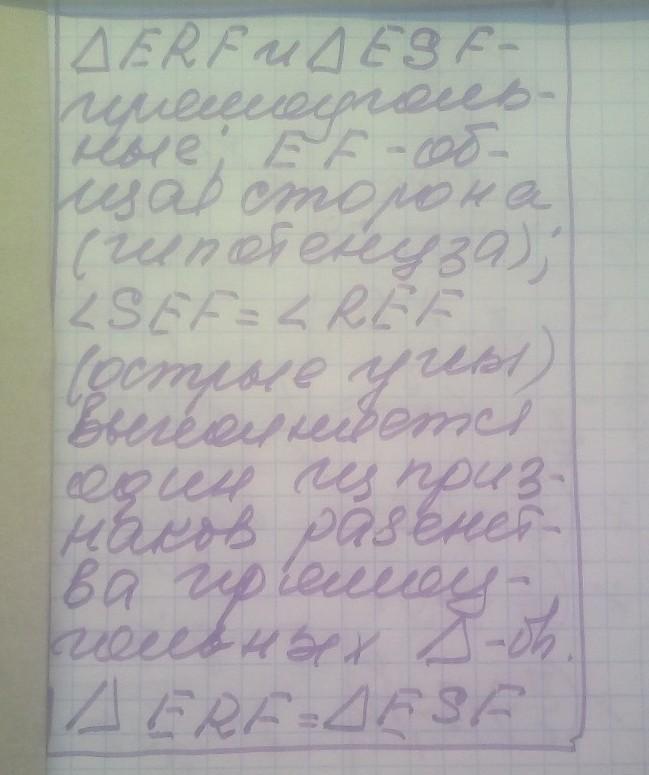 △ERF и △ESF-
прямоуголь-
ные; EF-об-
щая сторона
(гипотенуза);
∠SEF=∠REF
(острые углы)
Выполняется
один из приз-
наков равенст-
ва прямоу-
гольных △-ов.
△ERF=△ESF